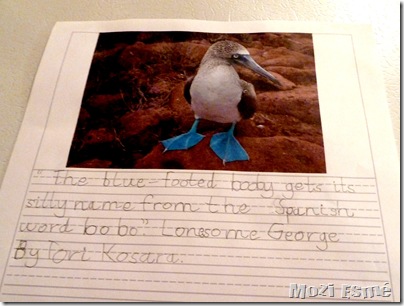 "The blue-footed body gets its
silly name from the Spanish
word bobo." Lonesome George
By Tori Kosara.
Mozi Esmé